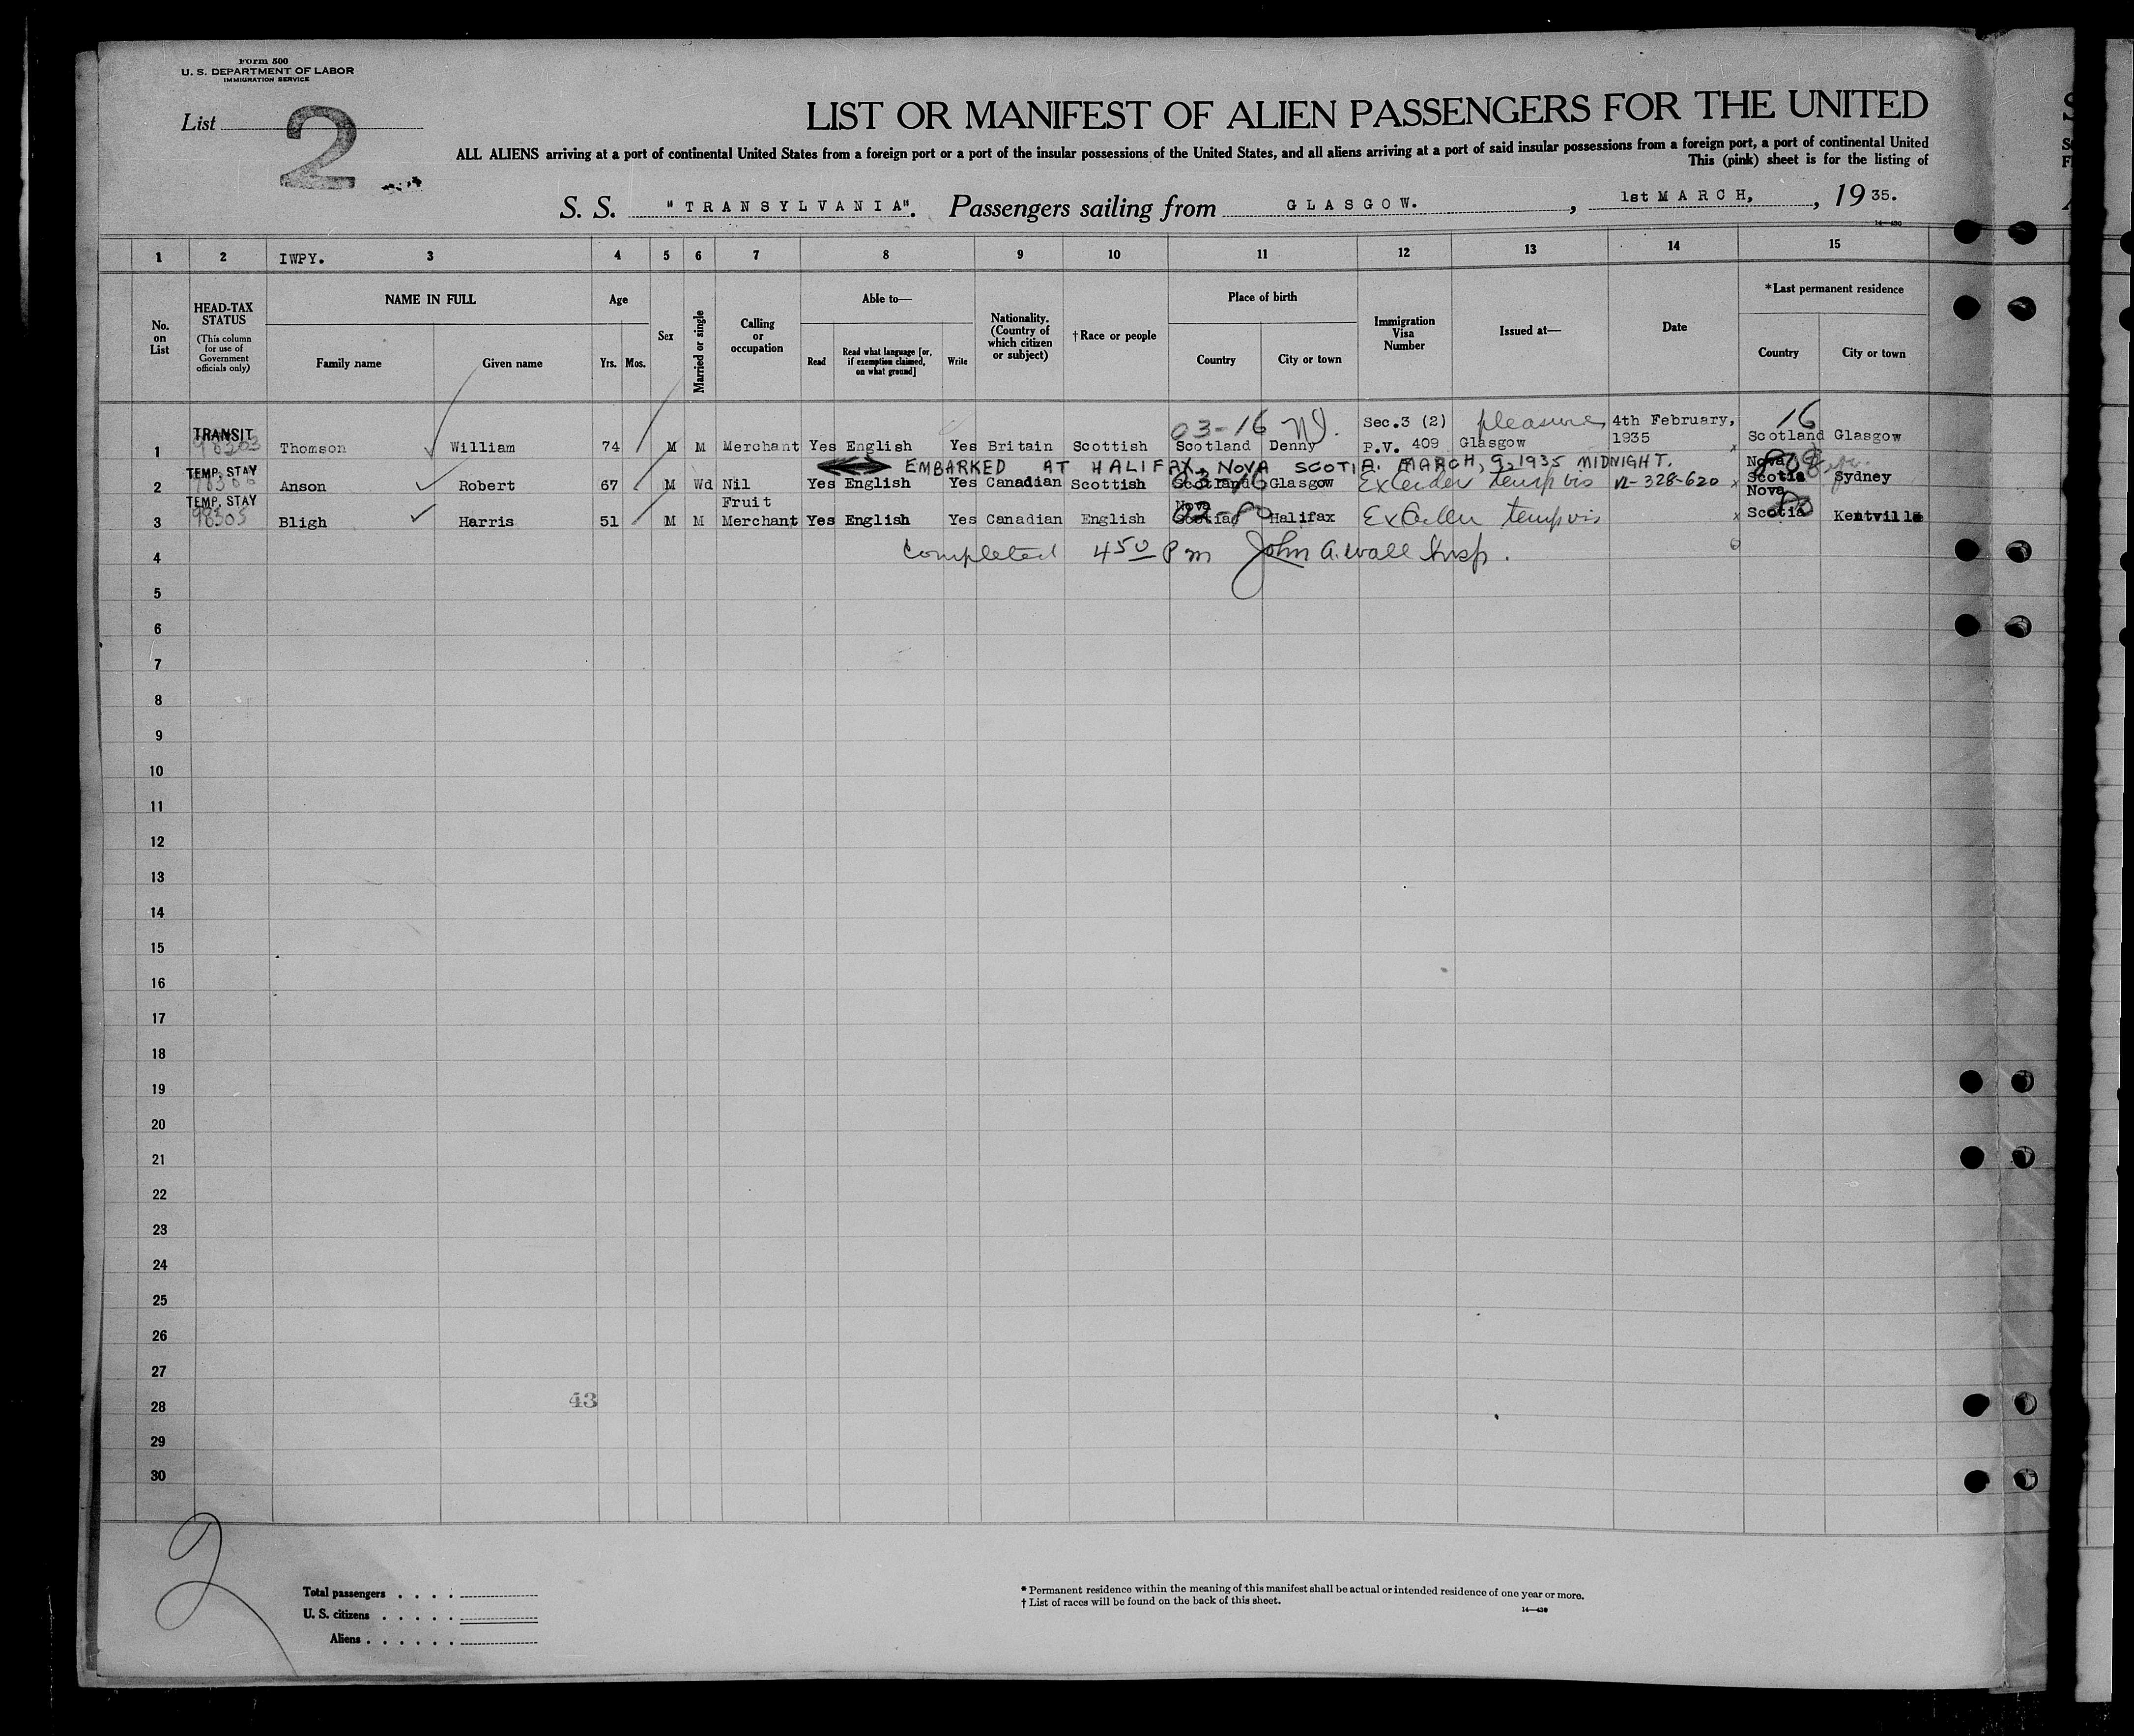 Form 500
U. S. DEPARTMENT OF LABOR
IMMIGRATION SERVICE
List 2
LIST OR MANIFEST OF ALIEN PASSENGERS FOR THE UNITED
ALL ALIENS arriving at a port of continental United States from a foreign port or a port of the insular possessions of the United States, and all aliens arriving at a port of said insular possessions from a foreign port, a port of continental United
This (pink) sheet is for the listing of
S. S. "TRANSYLVANIA". Passengers sailing from GLASGOW. , 1st MARCH, , 19 35.
14—430
1 2 IWPY. 3 4 5 6 7 8 9 10 11 12 13 14 15
No. on List
HEAD-TAX STATUS
(This column for use of Government officials only)
NAME IN FULL
Family name Given name
Age
Yrs. Mos.
Sex
Married or single
Calling or occupation
Able to—
Read Read what language [or, if exemption claimed, on what ground] Write
Nationality. (Country of which citizen or subject)
†Race or people
Place of birth
Country City or town
Immigration Visa Number
Issued at—
Date
*Last permanent residence
Country City or town
03-16 pleasure 16
1 TRANSIT 98303 Thomson William 74 M M Merchant Yes English Yes Britain Scottish Scotland Denny Sec.3 (2) P.V. 409 Glasgow 4th February, 1935 Scotland Glasgow
EMBARKED AT HALIFAX, NOVA SCOTIA. MARCH, 9, 1935 MIDNIGHT.
2 TEMP. STAY Anson Robert 67 M Wd Nil Yes English Yes Canadian Scottish Scotland Glasgow temp vis VL-328-620 Nova Scotia Sydney
3 TEMP. STAY 98305 Bligh Harris 51 M M Fruit Merchant Yes English Yes Canadian English Nova Scotia Halifax temp vis Nova Scotia Kentville
completed 4 50 Pm John A. Wall Insp.
4
5
6
7
8
9
10
11
12
13
14
15
16
17
18
19
20
21
22
23
24
25
26
27
28 43
29
30
2
Total passengers . . . .
U. S. citizens . . . . .
Aliens . . . . . .
* Permanent residence within the meaning of this manifest shall be actual or intended residence of one year or more.
† List of races will be found on the back of this sheet.
14—430